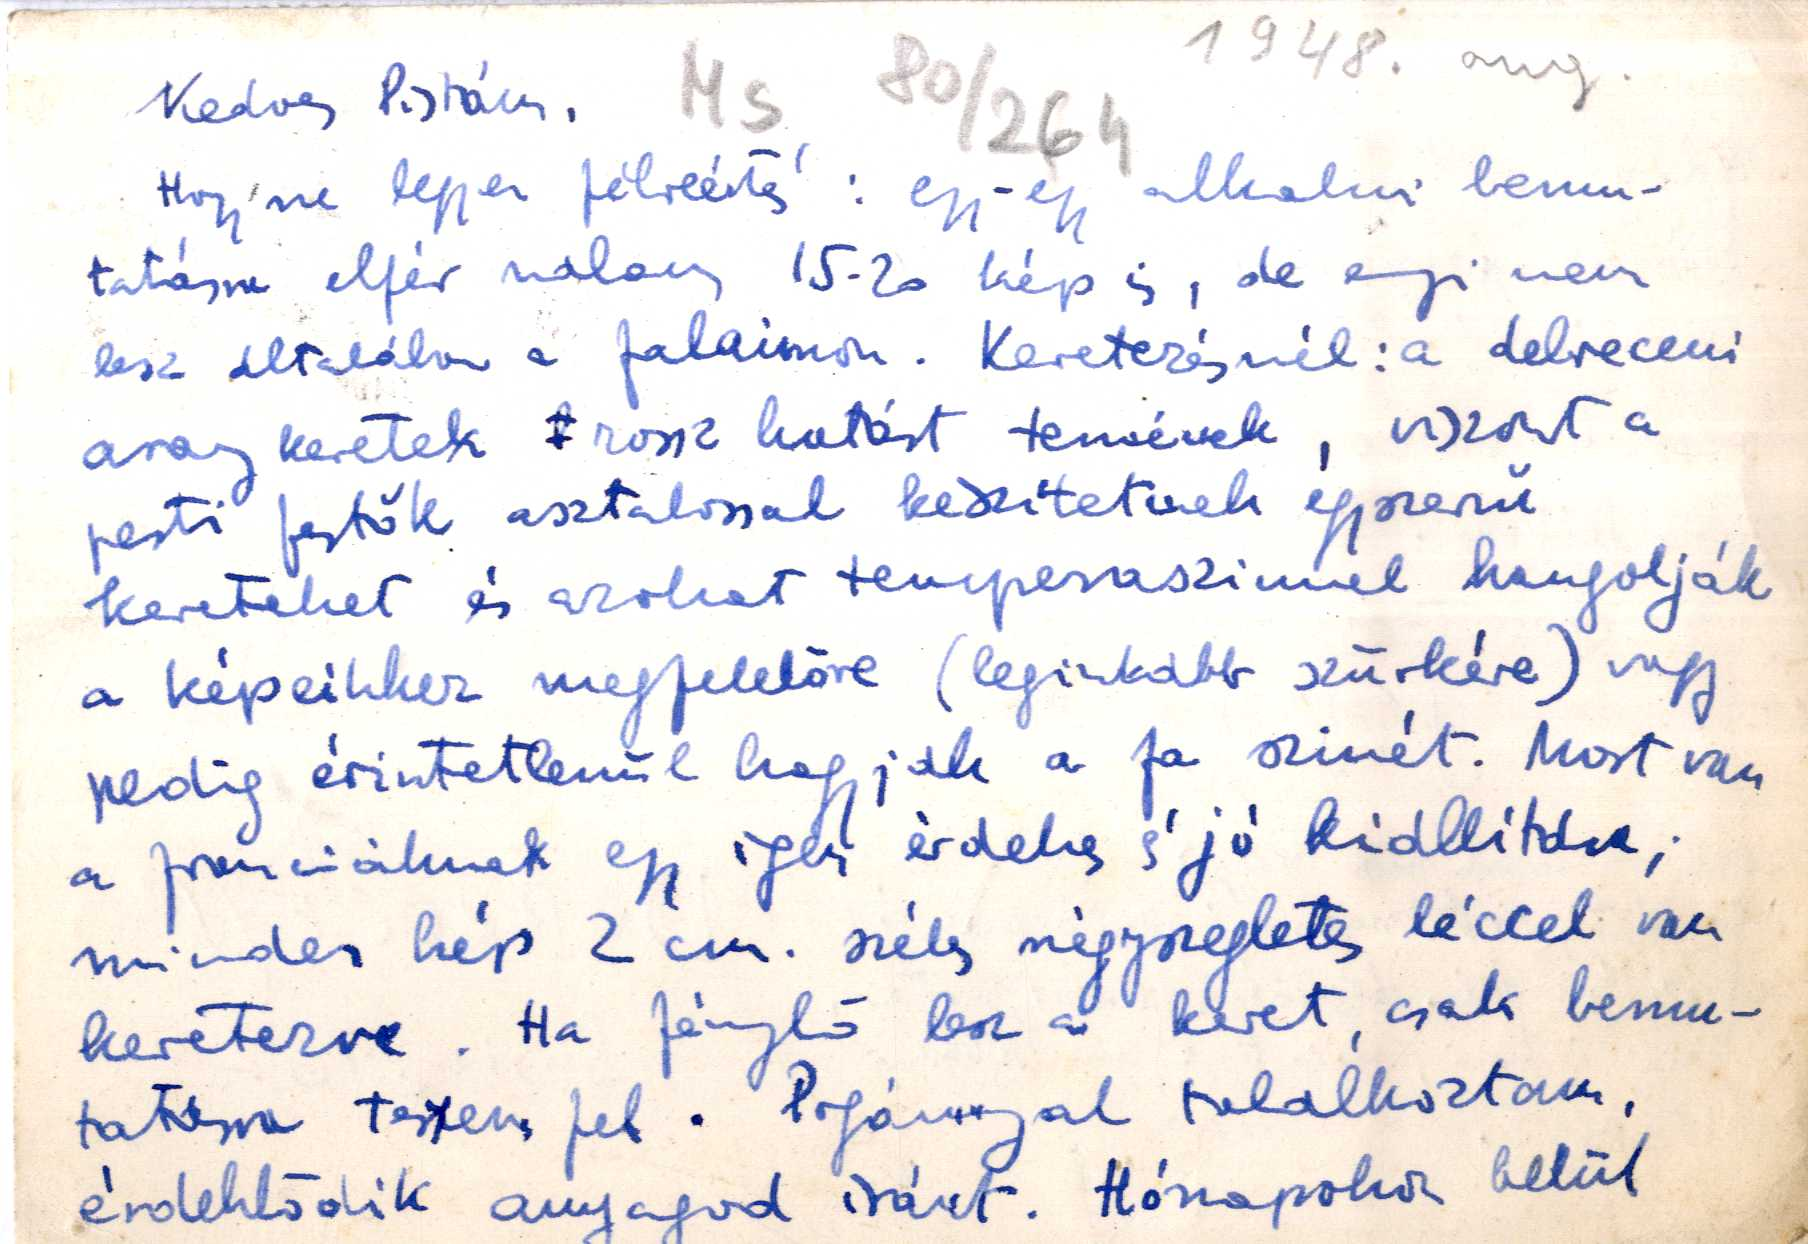 1948. aug.
Ms 80/264
Kedves Pistám,
Hogy ne legyen félreértés: egy-egy alkalmi bemu-
tatásra elfér nálam 15-20 kép is, de ennyi nem
lesz általában a falaimon. Keretezésnél: a debreceni
arany keretek rossz hatást tennének, viszont a
pesti festők asztalossal készítetnek egyszerű
kereteket és azokat temperaszinnel hangolják
a képeikhez megfelelőre (leginkább szürkére) vagy
pedig érintetlenül hagyják a fa szinét. Most van
a franciáknak egy igen érdekes s jó kiállítása;
minden kép 2 cm. széles négyszegletes léccel van
keretezve. Ha fénylő lesz a keret, csak bemu-
tatásra teszem fel. Pogánnyal találkoztam,
érdeklődik anyagod iránt. Hónapokon belül